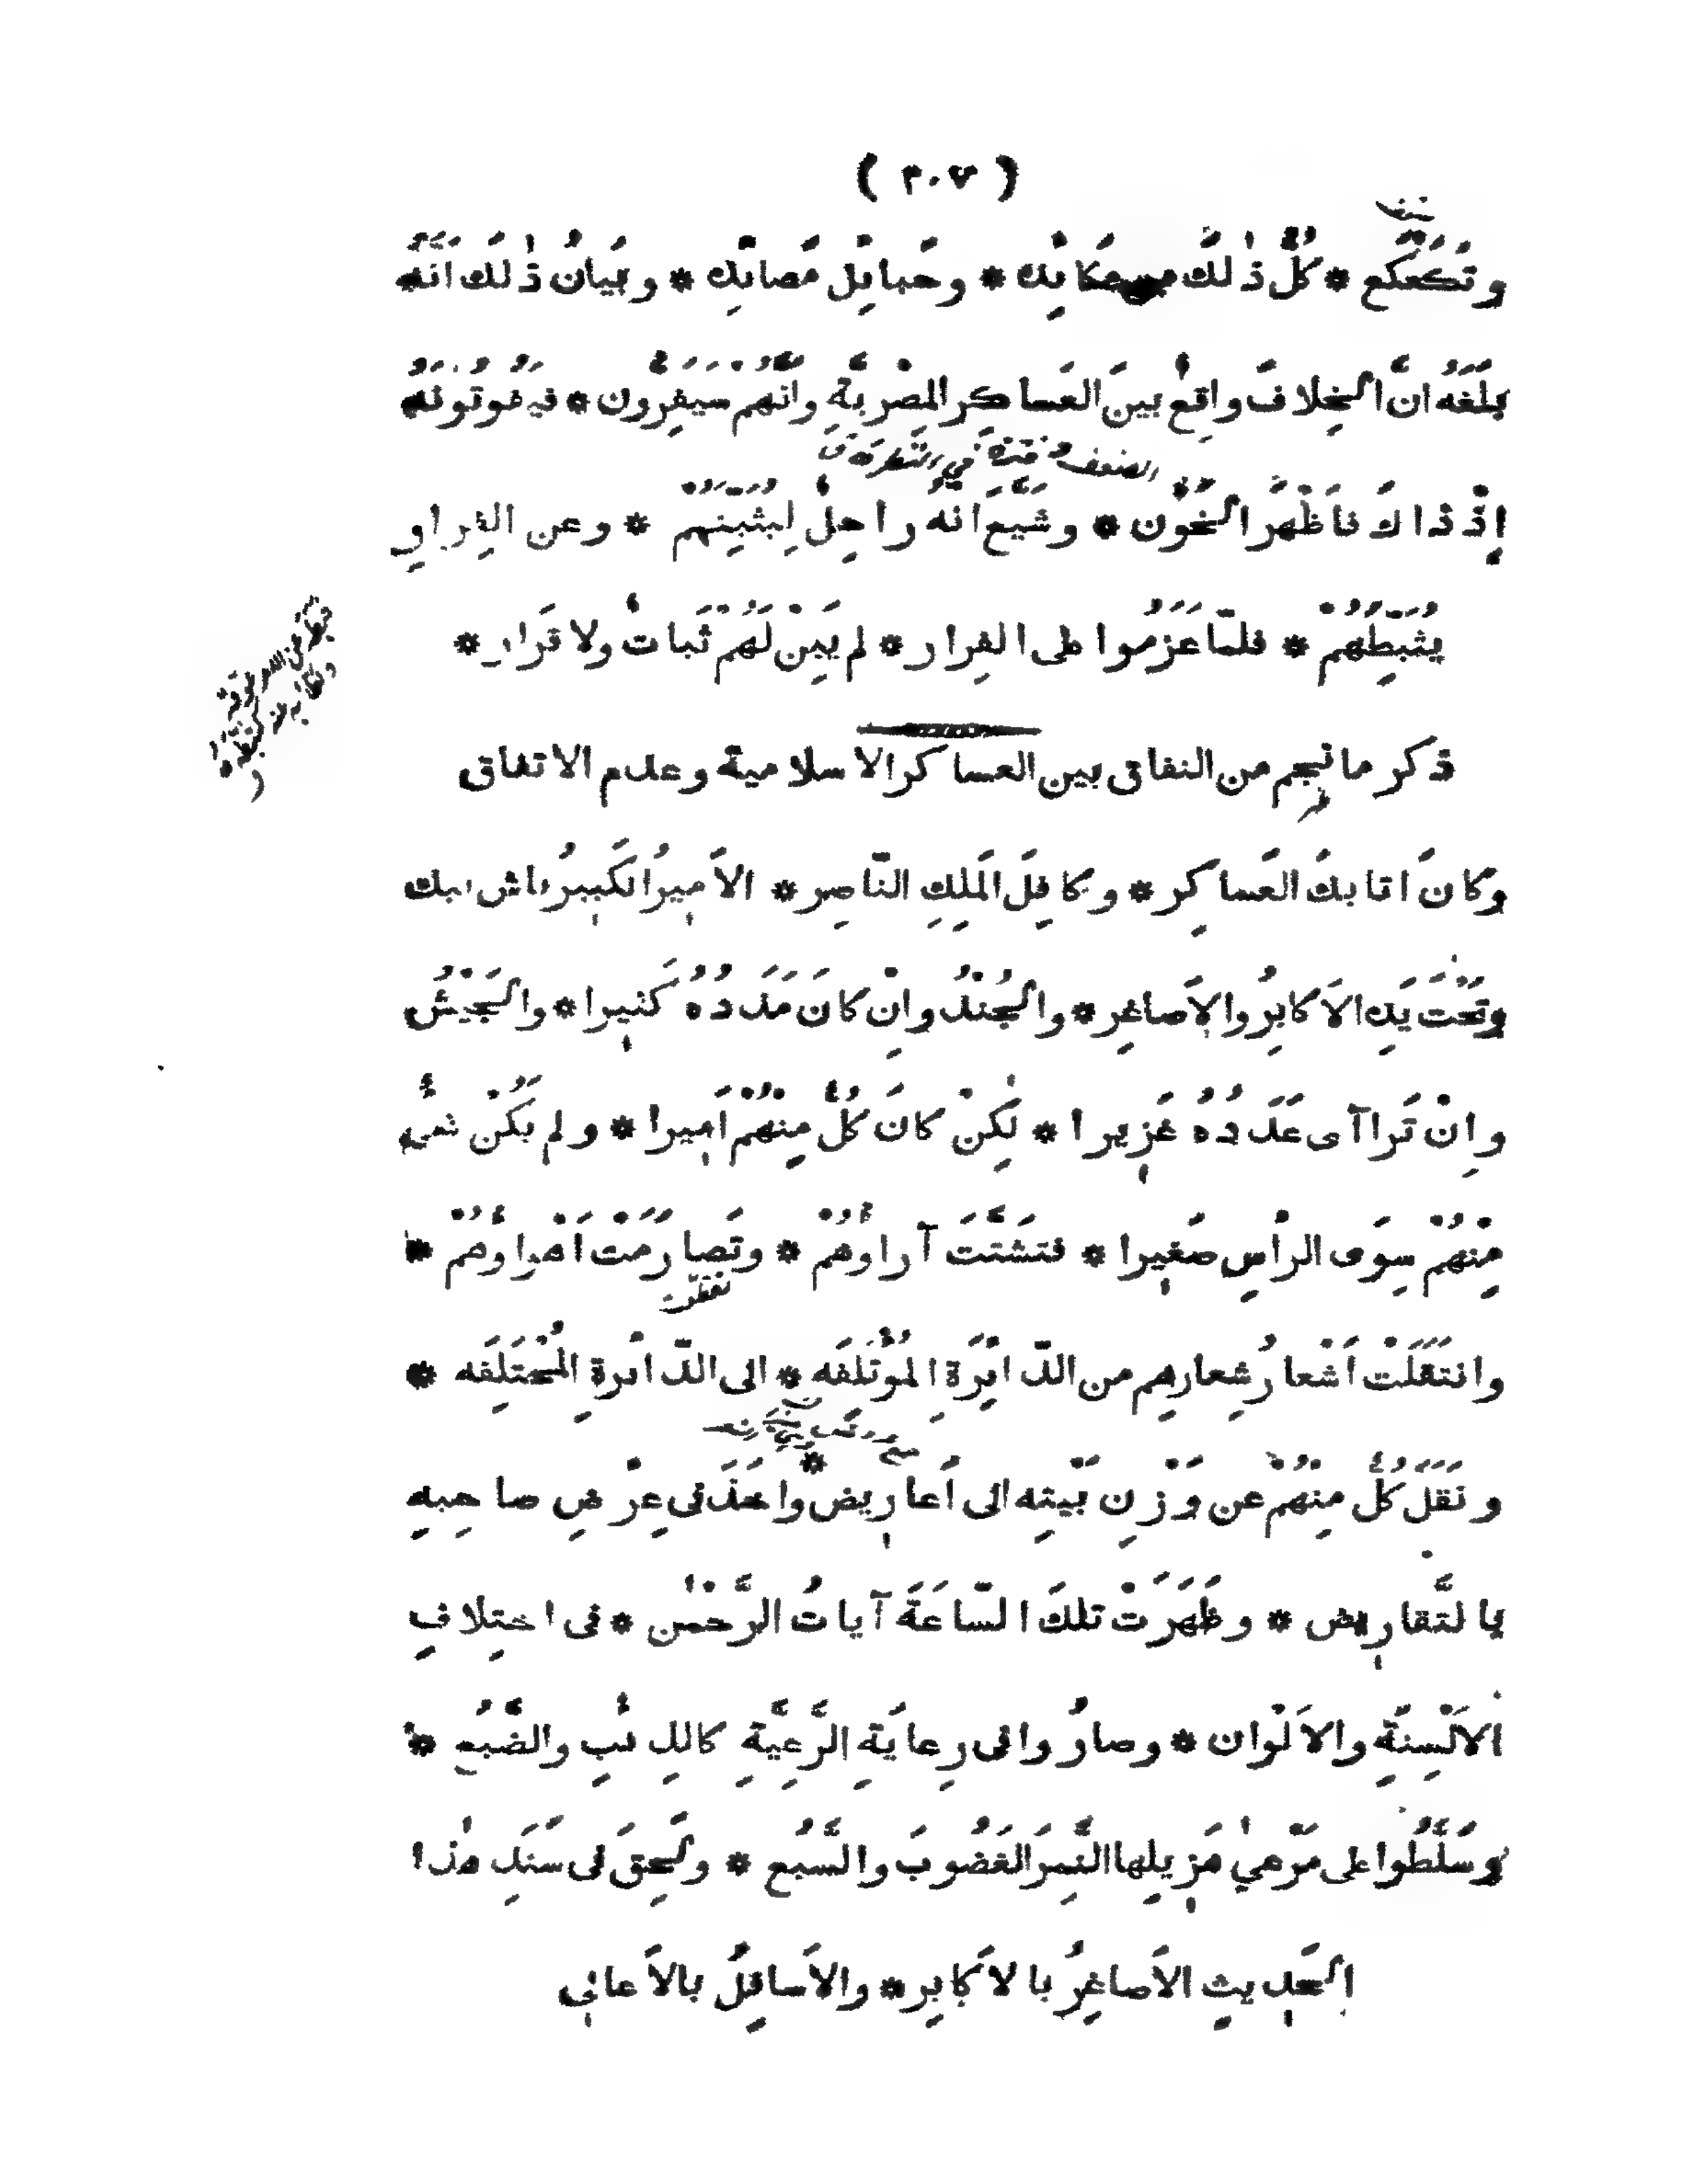 ( ٢٠٧ )
وتَكَعكُع * كُلُّ ذٰلكَ من مكايِدِه * وحَبايِلِ مَصايِدِه * وبَيانُ ذٰلك انَّهُ
بلَغَهُ انَّ الخِلافَ واقِعٌ بينَ العَساكِرِ المِصْرِيَّةِ وانَّهُم سَيَفِرُّون * فيَفُوتُونَهُ
اِذْ ذاكَ فاَظْهَرَ الخَوْن * وشَيَّعَ انَّهُ راحِلٌ لِيُثَبِّتَهُمْ * وعن الفِرارِ
يُثَبِّطَهُمْ * فلمّا عَزَمُوا على الفِرار * لم يَبِنْ لَهُمْ ثَباتٌ ولا قَرار *
ذكر ما نجم من النفاق بين العساكر الاسلامية وعدم الاتفاق
وكانَ اتابكُ العَساكِر * وكافِلَ المَلِكِ النّاصِر * الاَميرُ الكَبيرُ باش ببك
وتَحْتَ يَدِه الاَكابِرُ والاَصاغِر * والجُنْدُ وانْ كانَ مَدَدُهُ كَثيرا * والجَيْشُ
وانْ تَراآى عَدَدُهُ غَزِيرا * لٰكِنْ كانَ كُلٌّ مِنْهُمْ اَميرا * ولم يَكُنْ شئٌ
مِنْهُمْ سِوَى الرأسِ صَغيرا * فتشَتَّتَ آراؤُهُمْ * وتَصارَمَتْ اَهْواؤُهُمْ *
وانتَقَلَتْ اَشْعارُ شِعارِهِم من الدّائِرَةِ المُؤْتَلِفَه * الى الدّائرةِ المُختَلِفَه *
ونَقَلَ كُلٌّ مِنْهُمْ عن وَزْنِ بَيْتِه الى اَعارِيض واخَذَ في عِرْضِ صاحِبِه
بالتَّقارِيض * وظَهَرَتْ تلكَ السّاعَةَ آياتُ الرَّحْمٰن * فى اختِلافِ
الاَلْسِنَةِ والاَلْوان * وصارُوا فى رِعايَةِ الرَّعِيَّةِ كالذِئبِ والضَّبُع *
وسَلَّطُوا على مَرْعىٰ هَزِيلِها النَّمِرَ الغَضُوبَ والسَّبُع * ولَحِقَ فى سَنَدِ هٰذا
الحَديثِ الاَصاغِرُ بالاَكابِر * والاَسافِلُ بالاَعالى